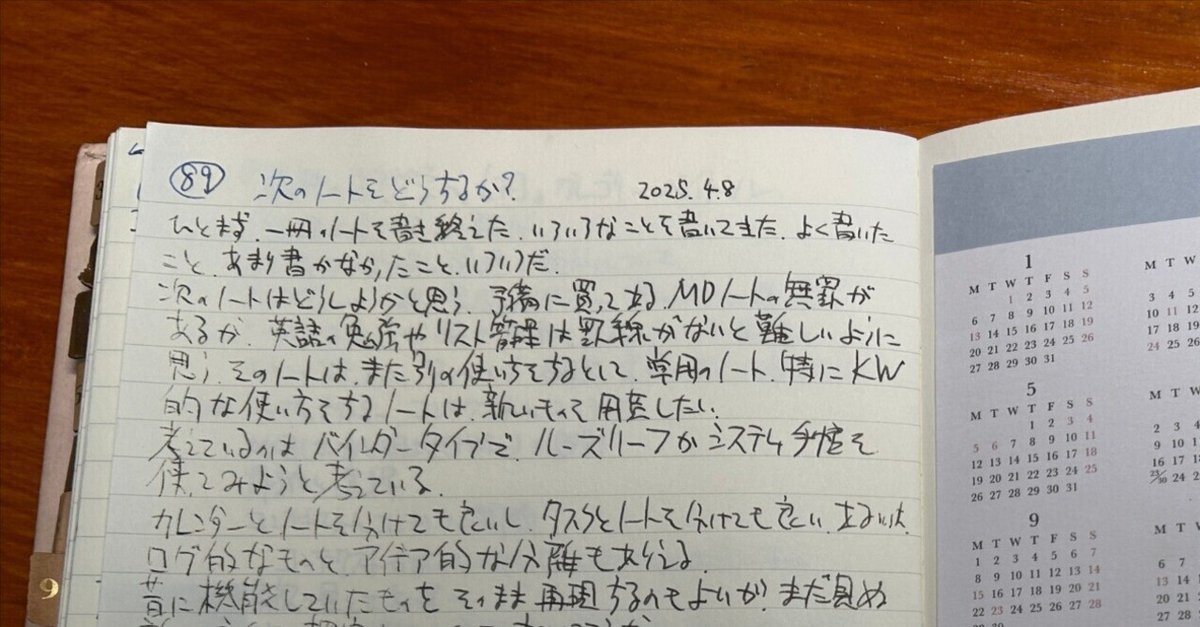 89 次のノートをどうするか? 2025.4.8
ひとまず、一冊のノートを書き終えた。いろいろなことを書いてきた。よく書いた
こと、あまり書かなかったこと、いろいろだ。
次のノートはどうしようかと思う。予備に買ってある MDノートの無罫が
あるが、英語の勉強やリスト管理は罫線がないと難しいように
思う。そのノートは、また別の使い方をするとして、常用のノート、特にKW
的な使い方をするノートは、新しいものを用意したい。
考えているのはバインダータイプで、ルーズリーフかシステム手帳を
使ってみようと考っている。
カレンダーとノートを分けても良いし、タスクとノートを分けても良い。あるいは、
ログ的なものと、アイデア的な分離もありえる。
昔に機能していたものをそのまま再現するのもよいが?まだ見ぬ
9
1
M T W T F S S
1 2 3 4 5
6 7 8 9 10 11 12
13 14 15 16 17 18 19
20 21 22 23 24 25 26
27 28 29 30 31
5
M T W T F S S
1 2 3 4
5 6 7 8 9 10 11
12 13 14 15 16 17 18
19 20 21 22 23 24 25
26 27 28 29 30 31
9
M T W T F S S
1 2 3 4 5 6 7
8 9 10 11 12 13 14
15 16 17 18 19 20 21
22 23 24 25 26 27 28
29 30
M T W
3 4 5
10 11 12
17 18 19
24 25 26
M T W
2 3 4
9 10 11
16 17 18
23/30 24 25
M T W
6 7
13 14
20 21